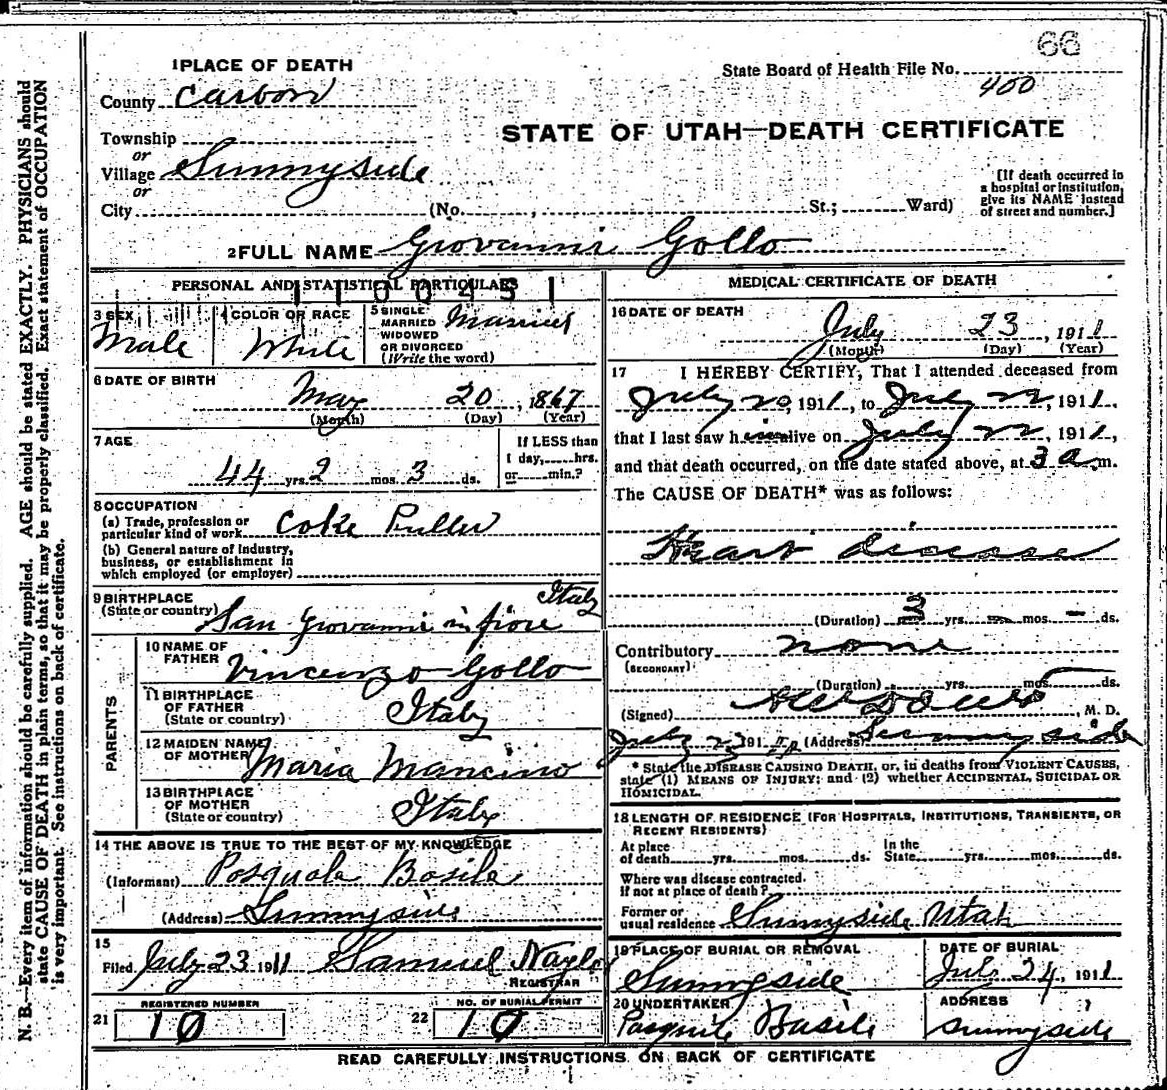 66
State Board of Health File No. 400
1 PLACE OF DEATH
County Carbon
STATE OF UTAH—DEATH CERTIFICATE
Township
or
Village Sunnyside
or
City (No. , St.; Ward)
[If death occurred in
a hospital or institution,
give its NAME instead
of street and number.]
2 FULL NAME Giovanni Gollo
PERSONAL AND STATISTICAL PARTICULARS
1100451
3 SEX
Male
4 COLOR OR RACE
White
5 SINGLE
MARRIED
WIDOWED
OR DIVORCED
(Write the word)
Married
6 DATE OF BIRTH
May 20, 1867
(Month) (Day) (Year)
7 AGE
44 yrs. 2 mos. 3 ds.
If LESS than
1 day, hrs.
or min.?
8 OCCUPATION
(a) Trade, profession or
particular kind of work Coke Puller
(b) General nature of industry,
business, or establishment in
which employed (or employer)
9 BIRTHPLACE
(State or country) San Giovanni in fiore Italy
PARENTS
10 NAME OF
FATHER Vincenzo Gollo
11 BIRTHPLACE
OF FATHER
(State or country) Italy
12 MAIDEN NAME
OF MOTHER Maria Mancino
13 BIRTHPLACE
OF MOTHER
(State or country) Italy
14 THE ABOVE IS TRUE TO THE BEST OF MY KNOWLEDGE
(Informant) Pasquale Basile
(Address) Sunnyside
15
Filed July 23 1911 Samuel Naylor
REGISTRAR
REGISTERED NUMBER
21 10
NO. OF BURIAL PERMIT
22 10
MEDICAL CERTIFICATE OF DEATH
16 DATE OF DEATH
July 23, 1911
(Month) (Day) (Year)
17 I HEREBY CERTIFY, That I attended deceased from
July 20, 1911, to July 22, 1911,
that I last saw him alive on July 22, 1911,
and that death occurred, on the date stated above, at 3 a.m.
The CAUSE OF DEATH* was as follows:
Heart disease
(Duration) 3 yrs. — mos. — ds.
Contributory none
(SECONDARY)
(Duration) yrs. mos. ds.
(Signed) , M. D.
July 23 191 (Address) Sunnyside
* State the DISEASE CAUSING DEATH, or, in deaths from VIOLENT CAUSES,
state (1) MEANS OF INJURY; and (2) whether ACCIDENTAL, SUICIDAL OR
HOMICIDAL.
18 LENGTH OF RESIDENCE (FOR HOSPITALS, INSTITUTIONS, TRANSIENTS, OR
RECENT RESIDENTS)
At place
of death yrs. mos. ds.
In the
State yrs. mos. ds.
Where was disease contracted.
if not at place of death?
Former or
usual residence Sunnyside Utah
19 PLACE OF BURIAL OR REMOVAL
Sunnyside
DATE OF BURIAL
July 24, 1911
20 UNDERTAKER
Pasquile Basile
ADDRESS
Sunnyside
READ CAREFULLY INSTRUCTIONS ON BACK OF CERTIFICATE
N. B.—Every item of information should be carefully supplied. AGE should be stated EXACTLY. PHYSICIANS should
state CAUSE OF DEATH in plain terms, so that it may be properly classified. Exact statement of OCCUPATION
is very important. See instructions on back of certificate.